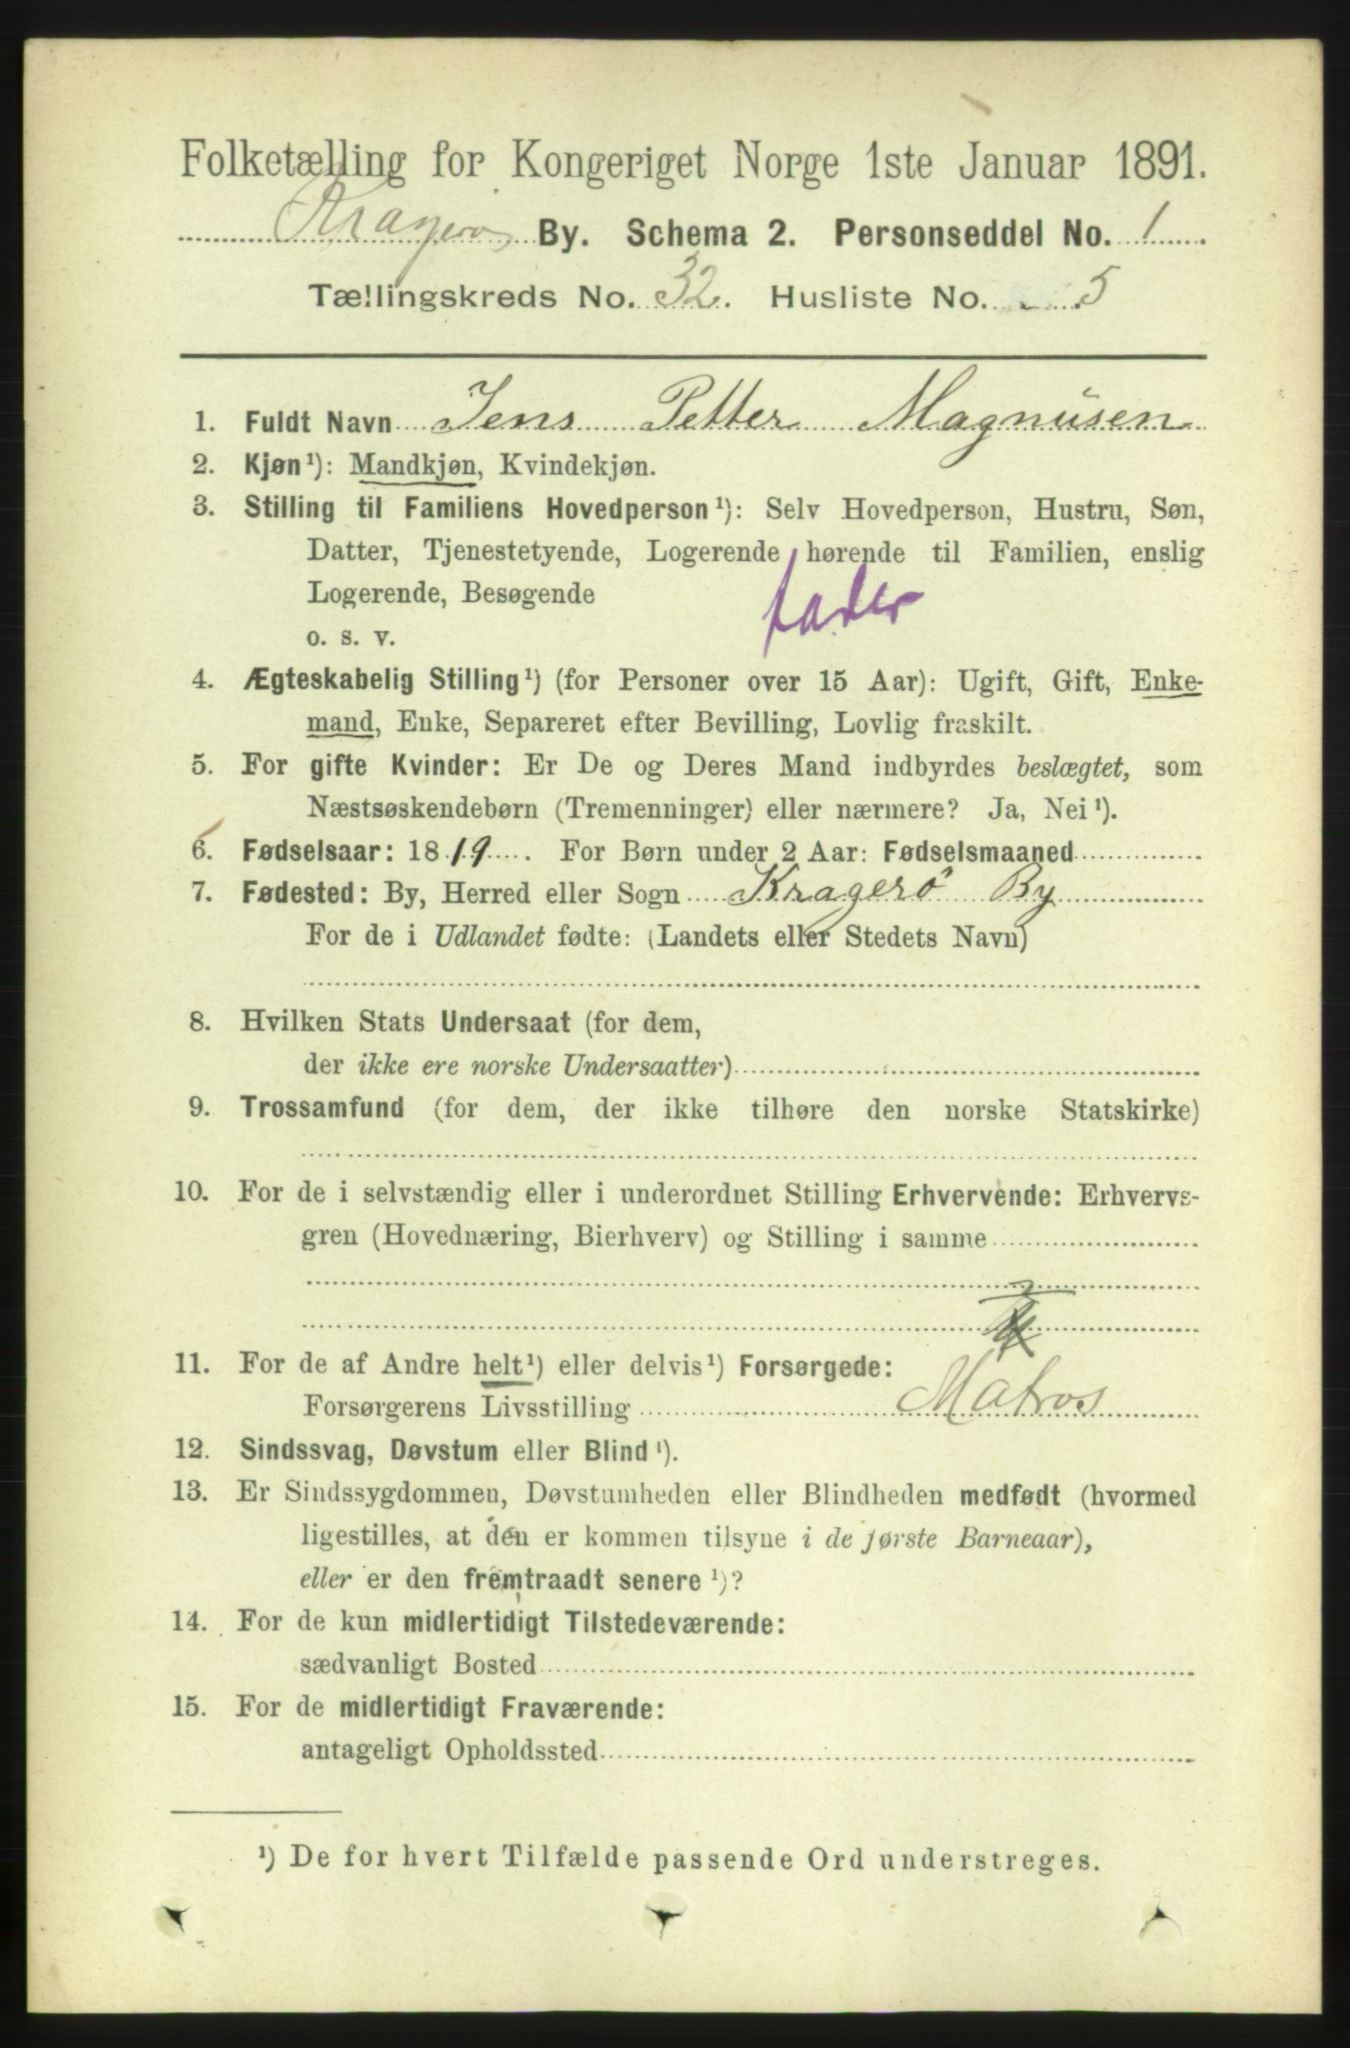 Folketælling for Kongeriget Norge 1ste Januar 1891.
Kragerø By. Schema 2. Personseddel No. 1
Tællingskreds No. 32. Husliste No. 5
1. Fuldt Navn Jens Petter Magnüsen
2. Kjøn¹): Mandkjøn, Kvindekjøn.
3. Stilling til Familiens Hovedperson¹): Selv Hovedperson, Hustru, Søn,
Datter, Tjenestetyende, Logerende hørende til Familien, enslig
Logerende, Besøgende
fader
o. s. v.
4. Ægteskabelig Stilling¹) (for Personer over 15 Aar): Ugift, Gift, Enke-
mand, Enke, Separeret efter Bevilling, Lovlig fraskilt.
5. For gifte Kvinder: Er De og Deres Mand indbyrdes beslægtet, som
Næstsøskendebørn (Tremenninger) eller nærmere? Ja, Nei¹).
6. Fødselsaar: 1819. For Børn under 2 Aar: Fødselsmaaned
7. Fødested: By, Herred eller Sogn Kragerö By
For de i Udlandet fødte: (Landets eller Stedets Navn)
8. Hvilken Stats Undersaat (for dem,
der ikke ere norske Undersaatter)
9. Trossamfund (for dem, der ikke tilhøre den norske Statskirke)
10. For de i selvstændig eller i underordnet Stilling Erhvervende: Erhvervs-
gren (Hovednæring, Bierhverv) og Stilling i samme
11. For de af Andre helt¹) eller delvis¹) Forsørgede:
Forsørgerens Livsstilling Matros
12. Sindssvag, Døvstum eller Blind¹).
13. Er Sindssygdommen, Døvstumheden eller Blindheden medfødt (hvormed
ligestilles, at den er kommen tilsyne i de første Barneaar),
eller er den fremtraadt senere¹)?
14. For de kun midlertidigt Tilstedeværende:
sædvanligt Bosted
15. For de midlertidigt Fraværende:
antageligt Opholdssted
¹) De for hvert Tilfælde passende Ord understreges.